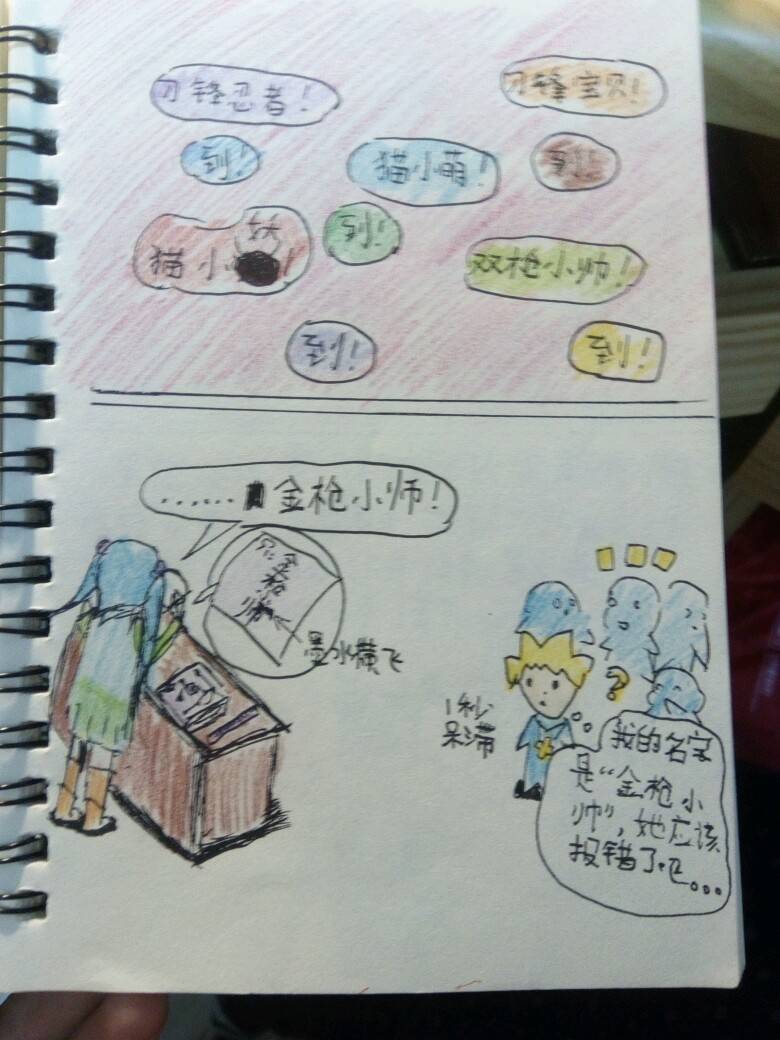 刀锋忍者！
刀锋宝贝！
到！
猫小萌！
到！
猫小妖！
到！
双枪小帅！
到！
到！
……金枪小师！
墨水横飞
1秒
呆滞
?
我的名字
是“金枪小
帅”，她应该
报错了吧。。。